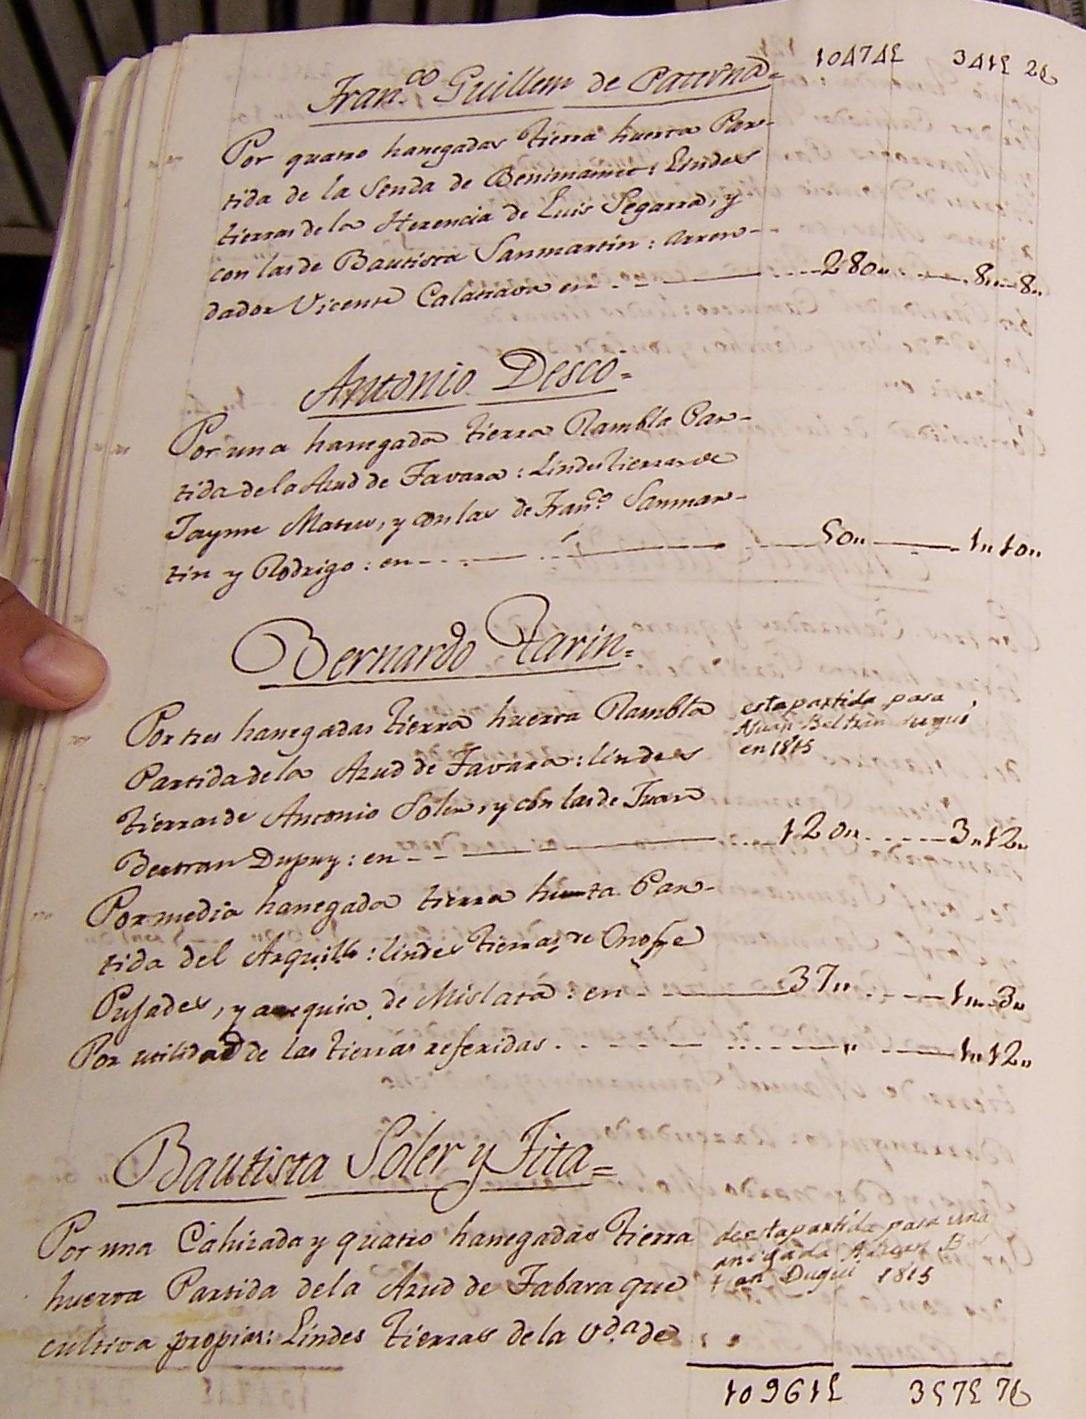 10474£ 341£ 26
Fran.co Guillem de Paterna=
Por quatro hanegadas tierra huerta Par-
tida de la Senda de Benimamet: Lindes
tierras de la Herencia de Luis Segarra, y
con las de Bautista Sanmartin: Arren-
dador Vicente Calatrava en 280,, 8,, 8,,
Antonio Desco=
Por una hanegada tierra Rambla Par-
tida de la Azud de Favara: Lindes tierras de
Jayme Mateu, y con las de Fran.co Sanmar-
tin y Rodrigo: en 50,, 1,, 10,,
Bernardo Tarin=
Por tres hanegadas tierra huerta Rambla
Partida de la Azud de Favara: lindes
tierras de Antonio Soler, y con las de Juan
Beltran Dupuy: en 120,, 3,, 12,,
esta partida pasa
a Juan Beltran
en 1815
Por media hanegada tierra huerta Par-
tida del Arquillo: lindes tierras de Onofre
Pujades, y azequia de Mislata: en 37,, 1,, 3,,
Por utilidad de las tierras referidas ,, 1,, 12,,
Bautista Soler y Fita=
Por una Cahizada y quatro hanegadas tierra
huerta Partida de la Azud de Fabara que
cultiva propias: Lindes tierras de la V.da de
de esta partida pasa una
1815
10961£ 357£ 7